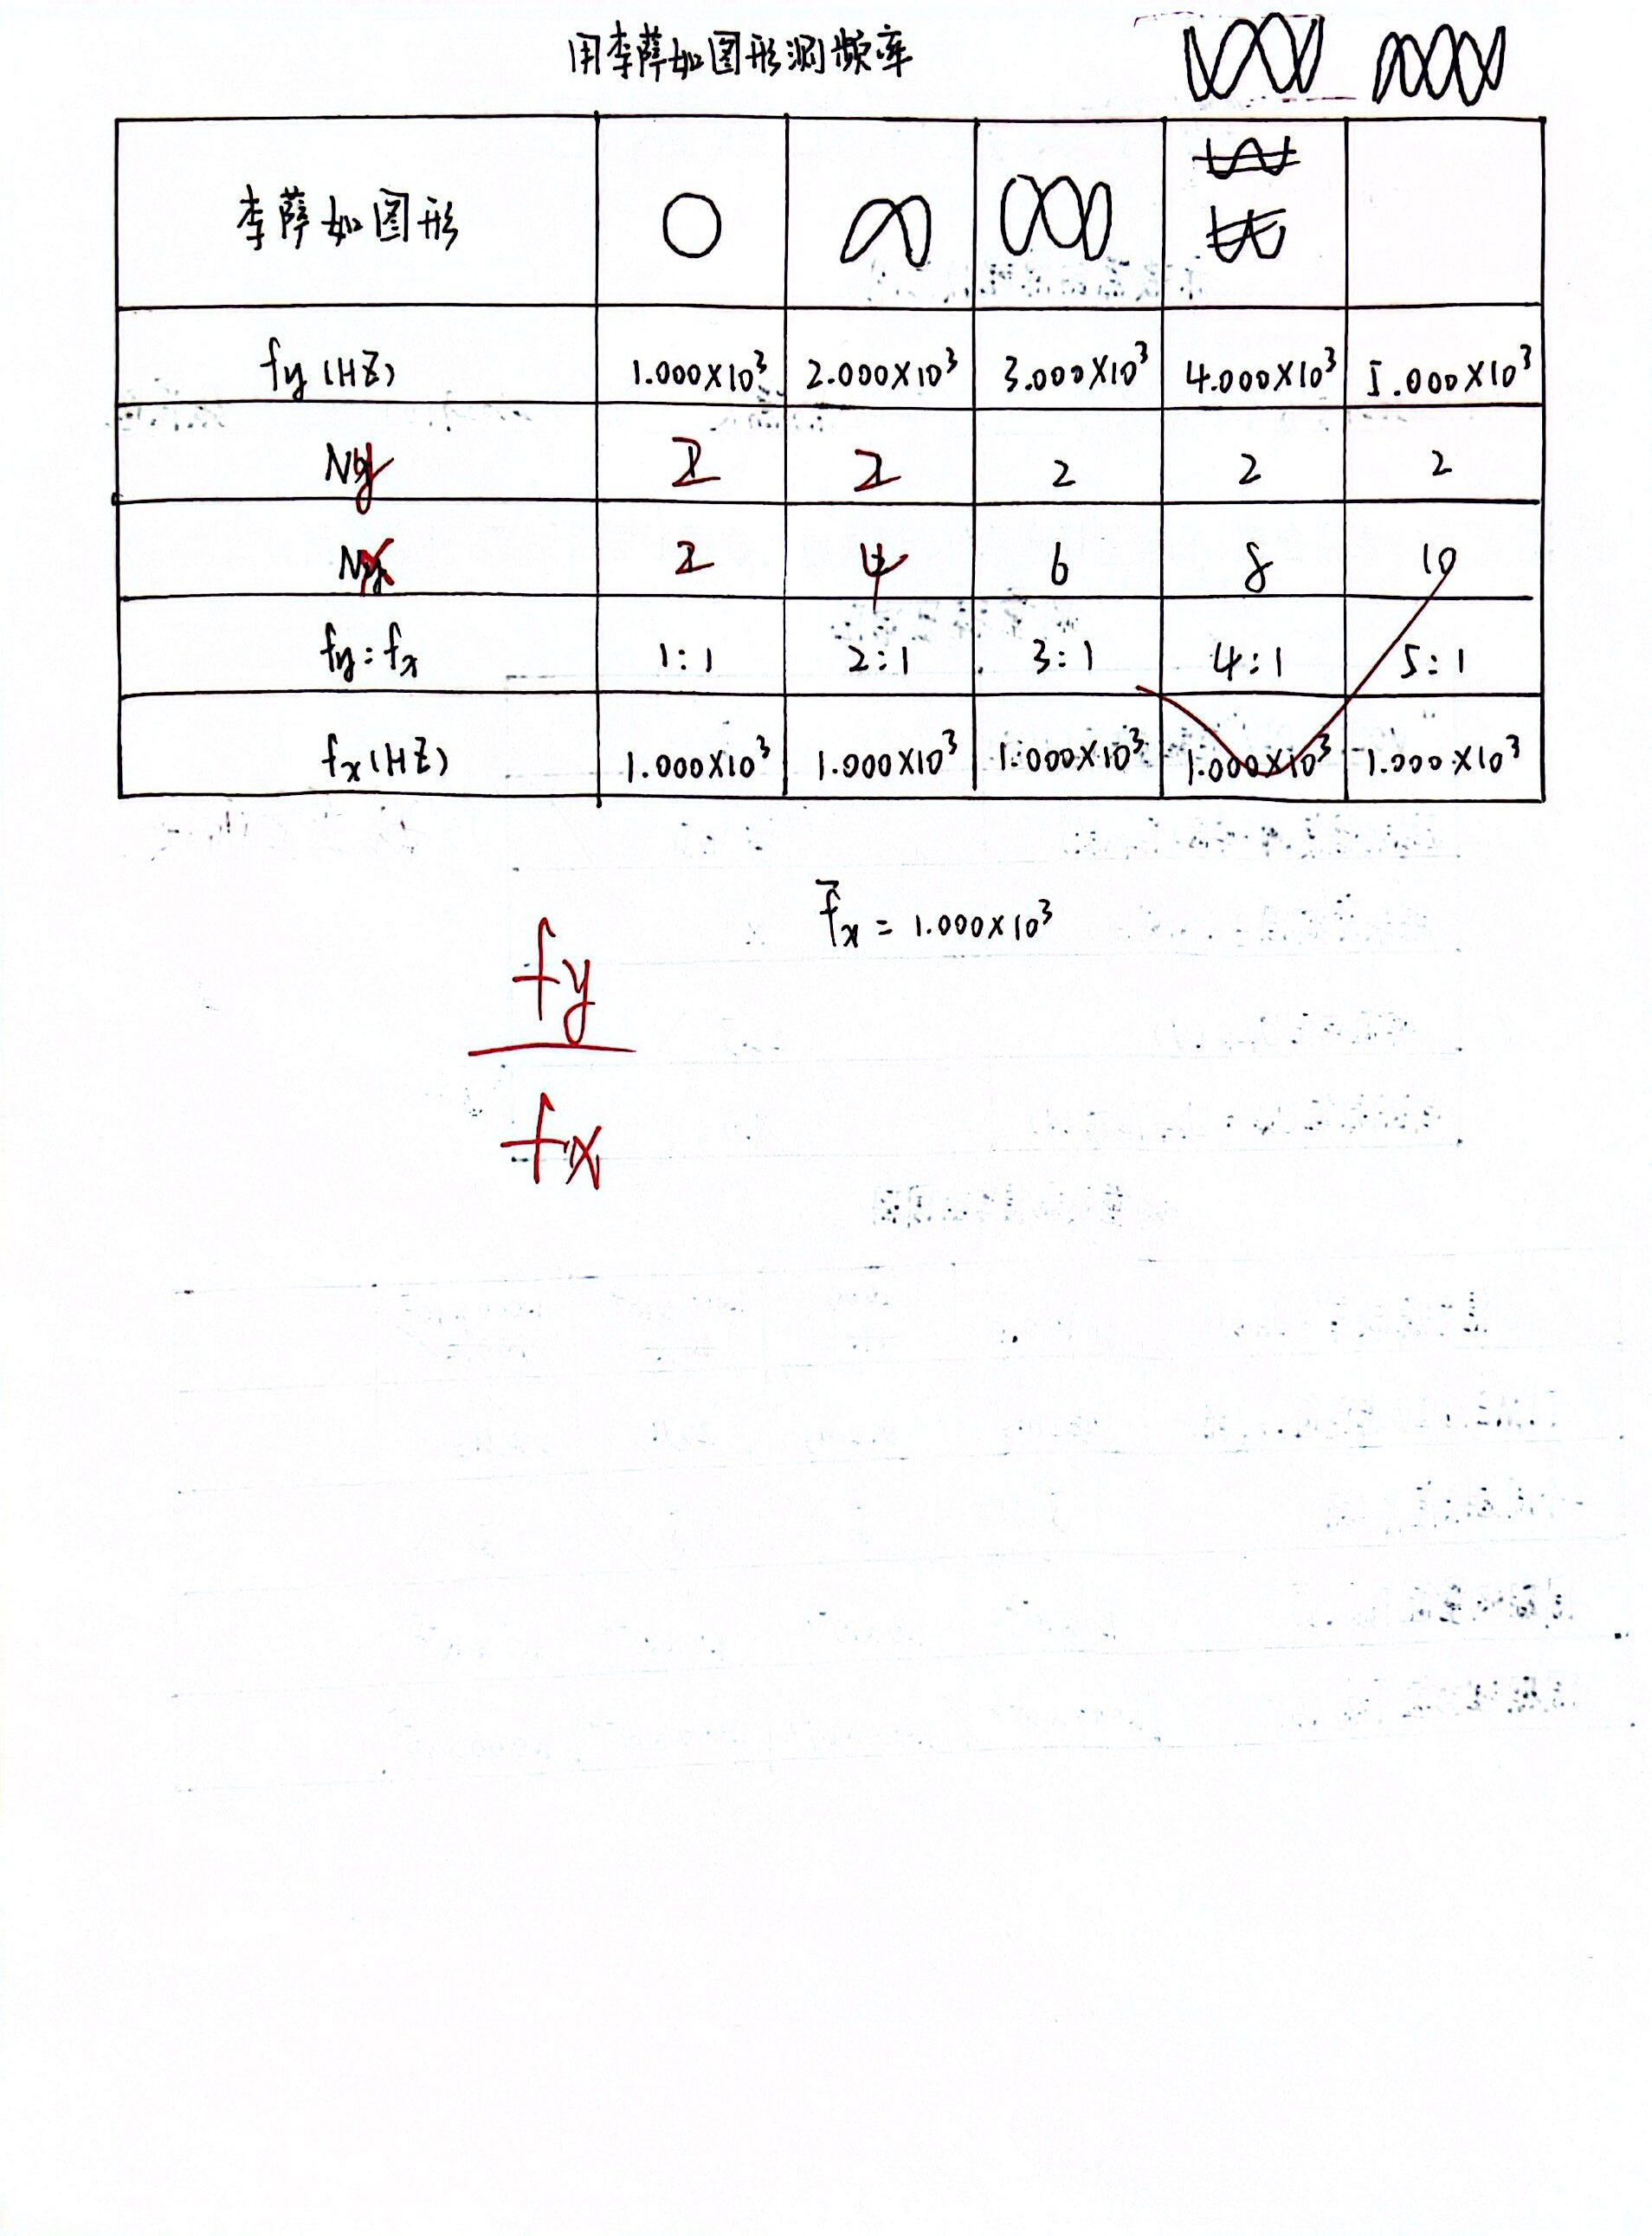 用李萨如图形测频率
李萨如图形
fy (HZ) 1.000×10³ 2.000×10³ 3.000×10³ 4.000×10³ 5.000×10³
Ny 2 2 2 2 2
Nx 2 4 6 8 10
fy:fx 1:1 2:1 3:1 4:1 5:1
fx (HZ) 1.000×10³ 1.000×10³ 1.000×10³ 1.000×10³ 1.000×10³
f̄x = 1.000×10³
fy
fx